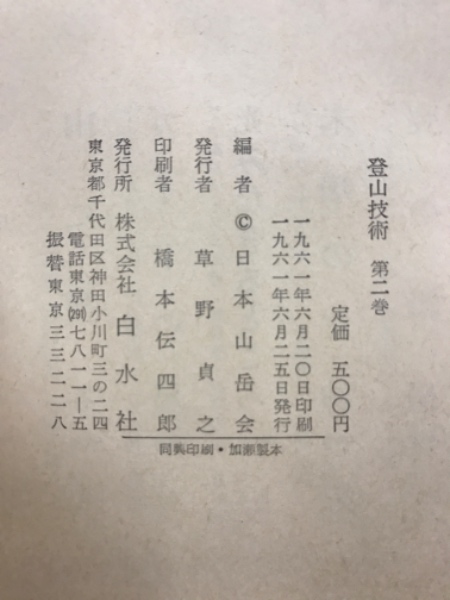 登山技術 第二巻
定価 五〇〇円
一九六一年六月二〇日印刷
一九六一年六月二五日発行
編者 ©日本山岳会
発行者 草野貞之
印刷者 橋本伝四郎
発行所 株式会社 白水社
東京都千代田区神田小川町三の二四
電話東京(291)七八一一―五
振替東京三三二二八
同興印刷・加瀬製本